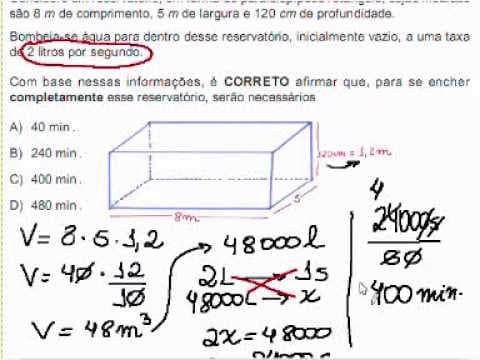 são 8 m de comprimento, 5 m de largura e 120 cm de profundidade.
Bombeia-se água para dentro desse reservatório, inicialmente vazio, a uma taxa
de 2 litros por segundo.
Com base nessas informações, é CORRETO afirmar que, para se encher
completamente esse reservatório, serão necessários
A) 40 min .
B) 240 min .
C) 400 min .
D) 480 min .
120cm = 1,2m
5
8m
V= 8·5·1,2
V= 40·12/10
V= 48m³
48000l
2L → 1s
48000L → x
2x = 48000
4
24000s
60
400 min.